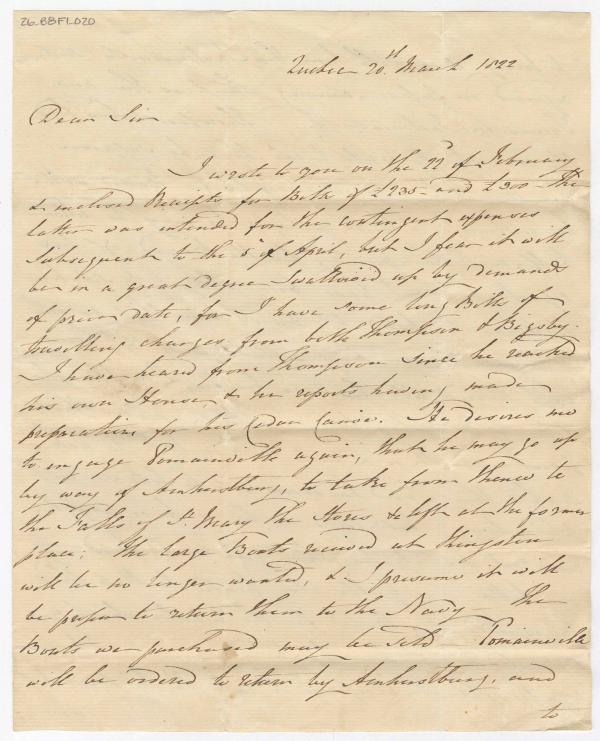 26.BBF1.020
Quebec 20st March 1822
Dear Sir
I wrote to you on the 22d of February
& inclosed Receipts for Bills of £235 - and £200 - The
latter was intended for the contingent expenses
subsequent to the 5th of April, but I fear it will
be in a great degree swallowed up by demands
of prior date, for I have some long Bills of
travelling charges from both Thompson & Bigsby.
I have heard from Thompson since he reached
his own House, & he reports having made
preparation for his Cedar Canoe. He desires me
to engage Pomainville again, that he may go up
by way of Amherstburg, to take from thence to
the Falls of St. Mary the Stores &c left at the former
place; The large Boats received at Kingston
will be no longer wanted, & I presume it will
be proper to return them to the Navy - The
Boats we purchased may be sold - Pomainville
will be ordered to return by Amherstburg, and
to